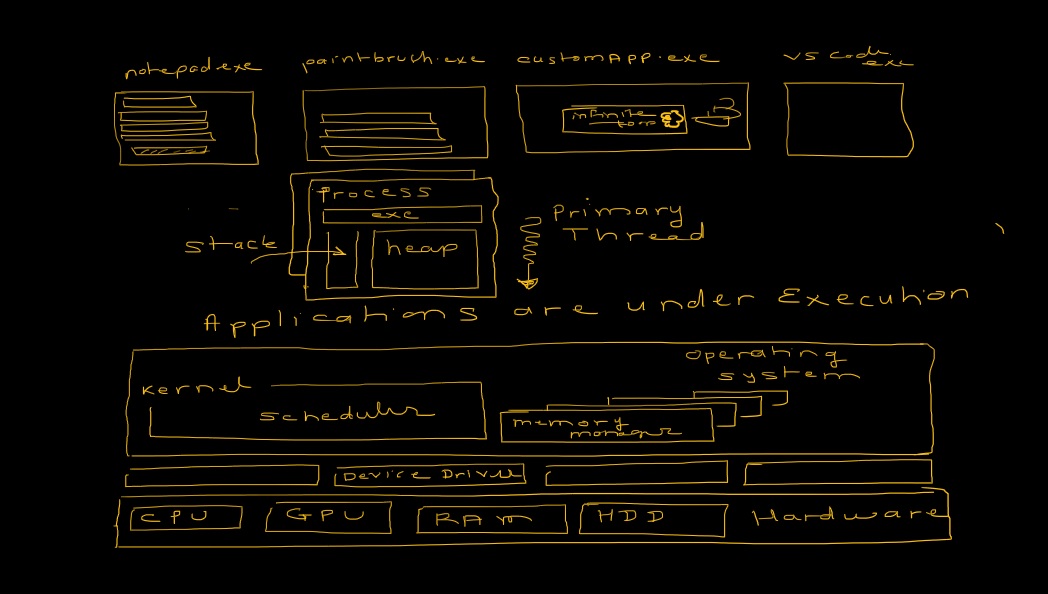 notepad.exe
paintbruch.exe
customApp.exe
vs code.exe
infinite
Process
exe
stack
heap
Primary
Thread
Applications are under Execution
operating
system
Kernel
scheduler
memory
manager
Device Driver
CPU
GPU
RAM
HDD
Hardware